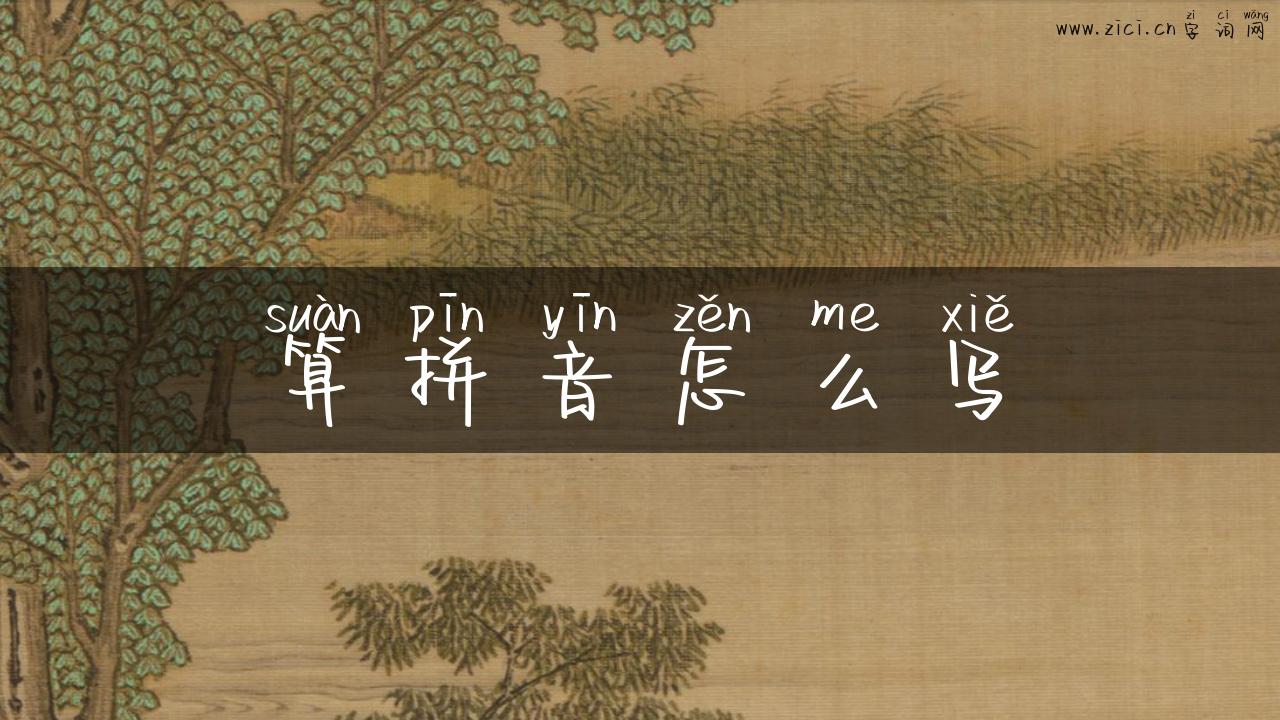 www.zici.cn
zì cí wǎng
字词网
suàn pīn yīn zěn me xiě
算拼音怎么写